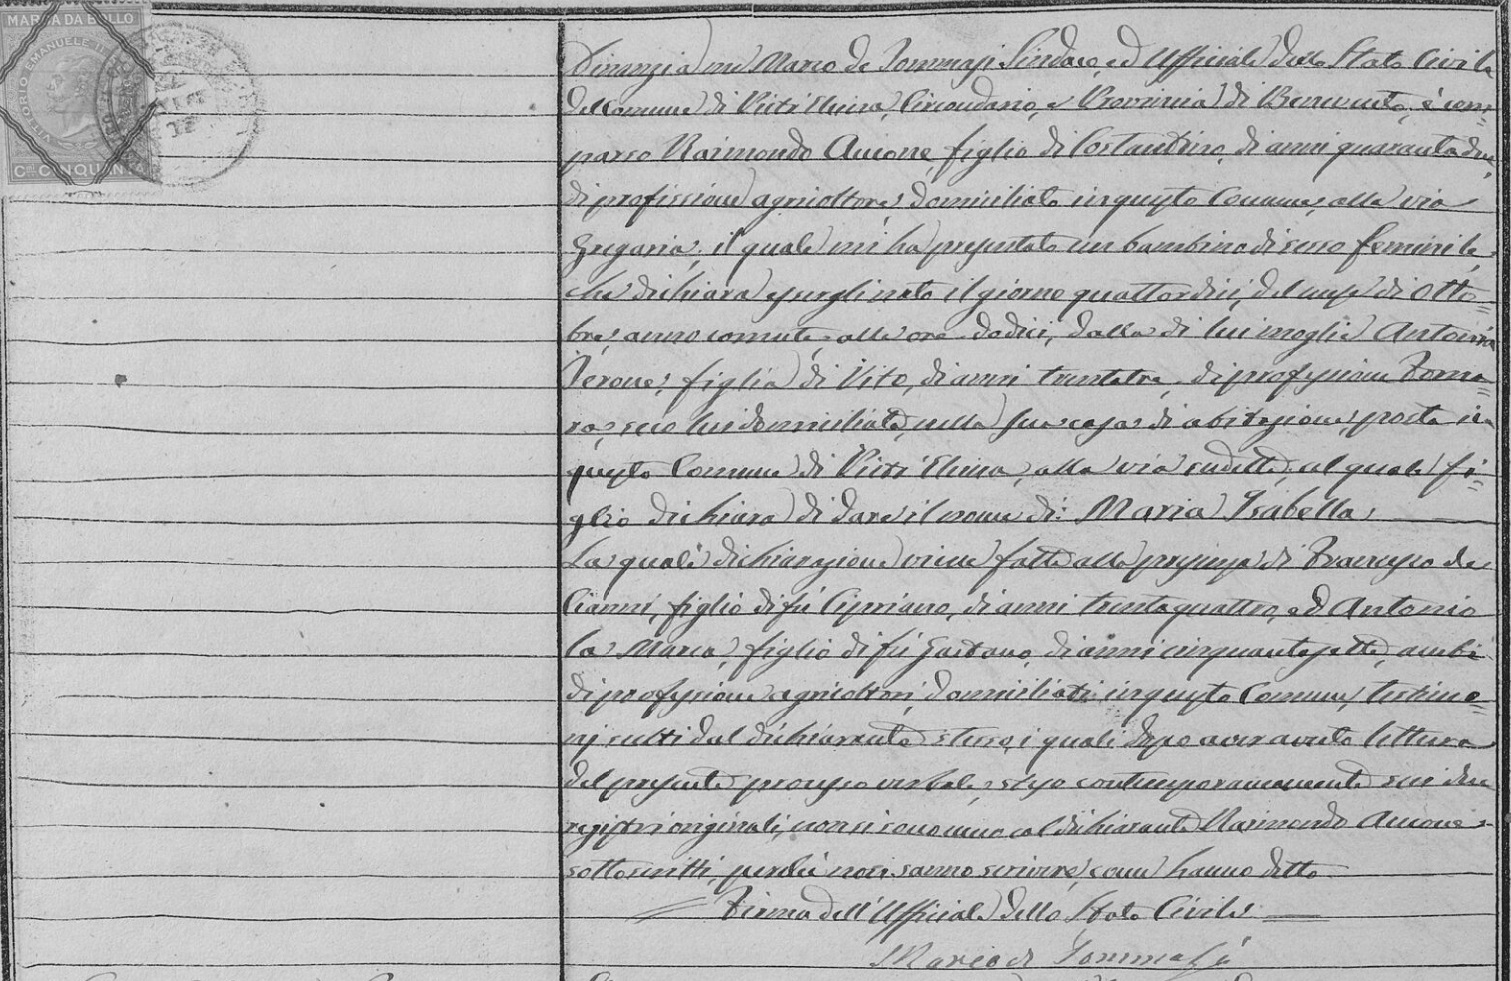 MARCA DA BOLLO
VITTORIO EMANUELE II
CMI CINQUANTA
Dinanzi a me Marco de Tommasi Sindaco, ed Ufficiale dello Stato Civile
del Comune di Circondario, e Provincia di Benevento, è com=
parso Raimondo Aucone, figlio di Costantino, di anni quarantadue,
di profissione agricoltore, domiciliato in questo Comune, alla via
Gregaria, il quale mi ha presentato un bambino di sesso feminile,
che dichiara essergli nato il giorno quattordici, del mese di Otto
bre, anno corrente, alle ore dodici, dalla di lui moglie Antonia
Perone, figlia di Vito, di anni trentatre, di professione Forna=
ra, seco lui domiciliata, nella sua casa di abitazione, posta in
questo Comune di alla via sudetta, al quale fi=
glio dichiara di dare il nome di: Maria Isabella
La quale dichiarazione viene fatta alla presenza di Francesco de
Cianni, figlio di fù Cipriano, di anni trentaquattro, ed Antonio
la Marca, figlio di fù Gaetano, di anni cinquantasette, ambi
di professione agricoltori, domiciliati in questo Comune, testimo=
nj scelti dal dichiarante stesso, i quali dopo aver avuto lettura
del presente processo verbale, steso contemporaneamente sui due
registri originali, non si sono meco col dichiarante Raimondo Aucone
sottoscritti, perchè non sanno scrivere, come hanno detto
Firma dell'Ufficiale dello Stato Civile
Marco de Tommasi